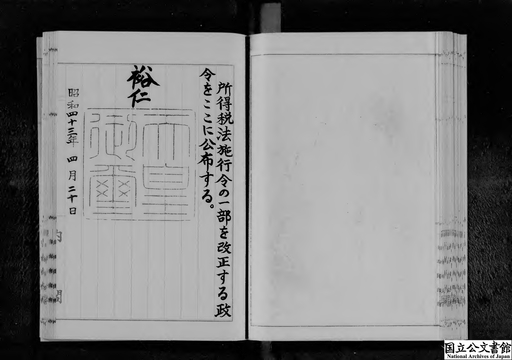 所得税法施行令の一部を改正する政
令をここに公布する。
裕仁
天皇
御璽
昭和四十三年四月二十日
内閣
国立公文書館
National Archives of Japan